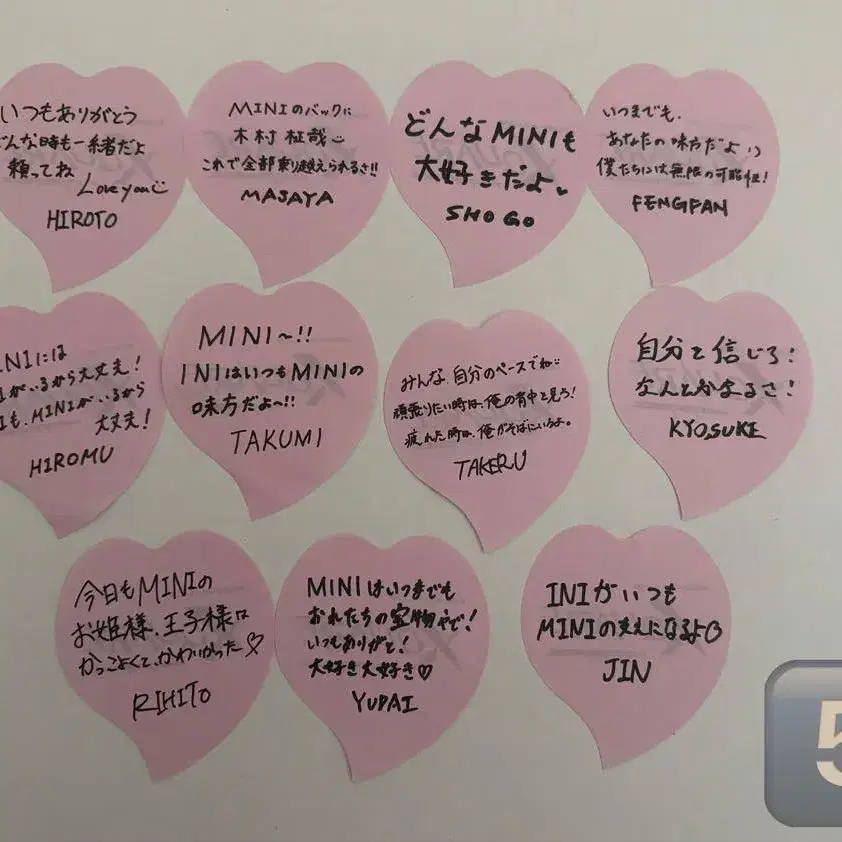 いつもありがとう
どんな時も一緒だよ
頼ってね
Love you
HIROTO
MINIのバックに
木村柾哉
これで全部乗り越えられるさ!!
MASAYA
どんなMINIも
大好きだよ
SHOGO
いつまでも、
あなたの味方だよ
僕たちには無限の可能性!
FENGFAN
NIには
がいるから大丈夫!
も、MINIがいるから
大丈夫!
HIROMU
MINI〜!!
INIはいつもMINIの
味方だよ〜!!
TAKUMI
みんな、自分のペースでね
頑張りたい時は、俺の背中を見ろ!
疲れた時は、俺がそばにいるよ。
TAKERU
自分を信じろ!
なんとかなるさ!
KYOSUKE
今日もMINIの
お姫様、王子様は
かっこよくて、かわいかった♡
RIHITO
MINIはいつまでも
おれたちの宝物やで!
いつもありがと!
大好き大好き♡
YUDAI
INIがいつも
MINIの支えになるよ
JIN
5